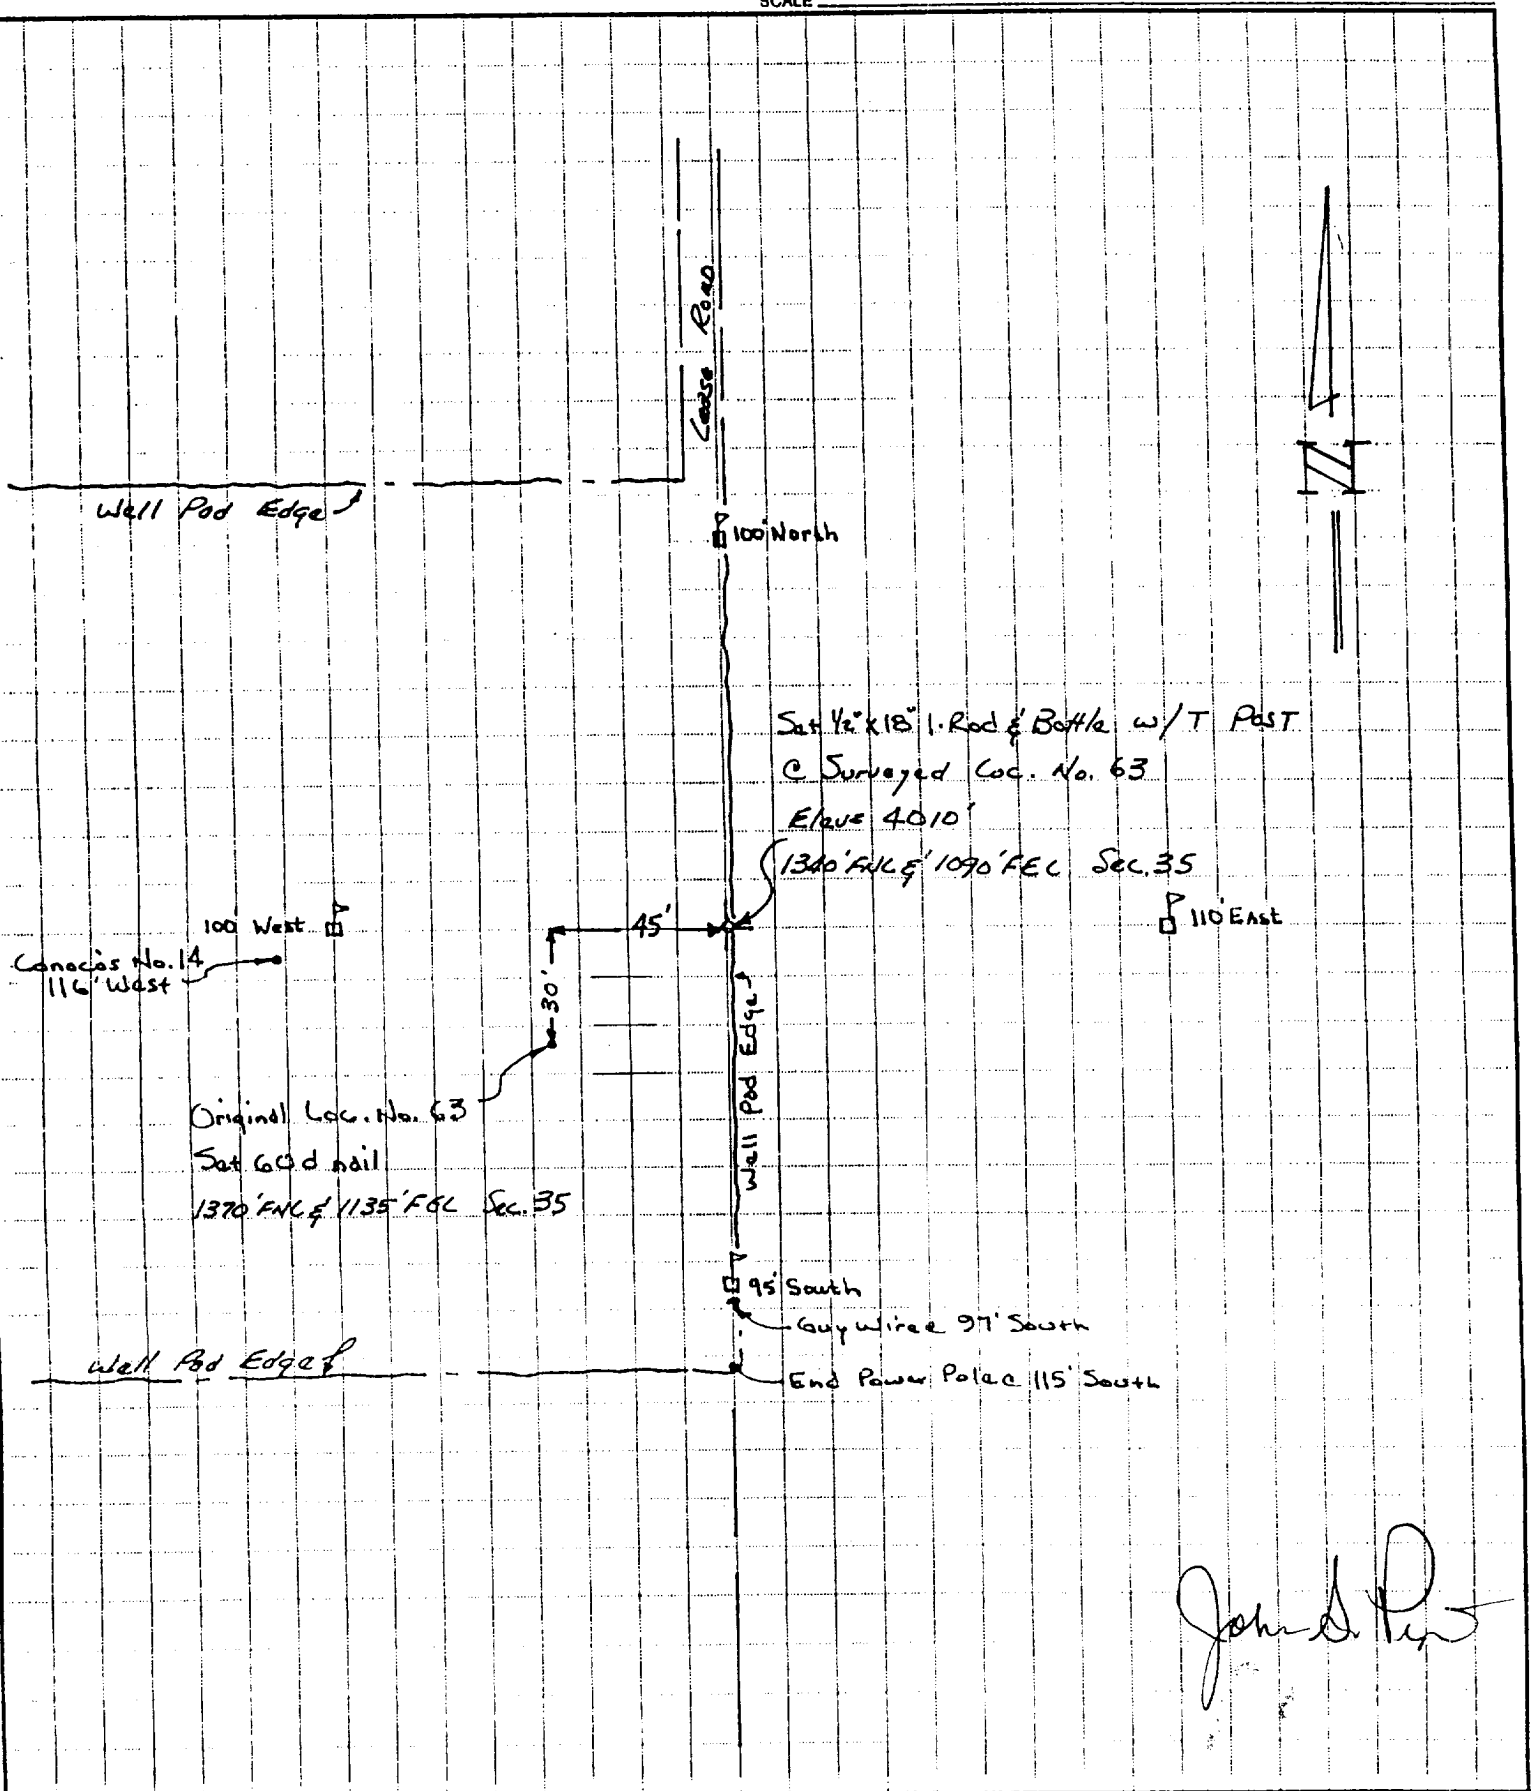 SCALE
Lease Road
Well Pad Edge
100' North
N
Set 1/2" x 18" I. Rod & Bottle w/ T Post
@ Surveyed Loc. No. 63
Elev = 4010'
1340' FNL & 1090' FEL Sec. 35
100 West
45'
110' East
Conoco's No. 14
116' West
30'
Well Pad Edge
Original Loc. No. 63
Set 60 d nail
1370' FNL & 1135' FEL Sec. 35
95' South
Guy Wire @ 97' South
Well Pad Edge
End Power Pole @ 115' South